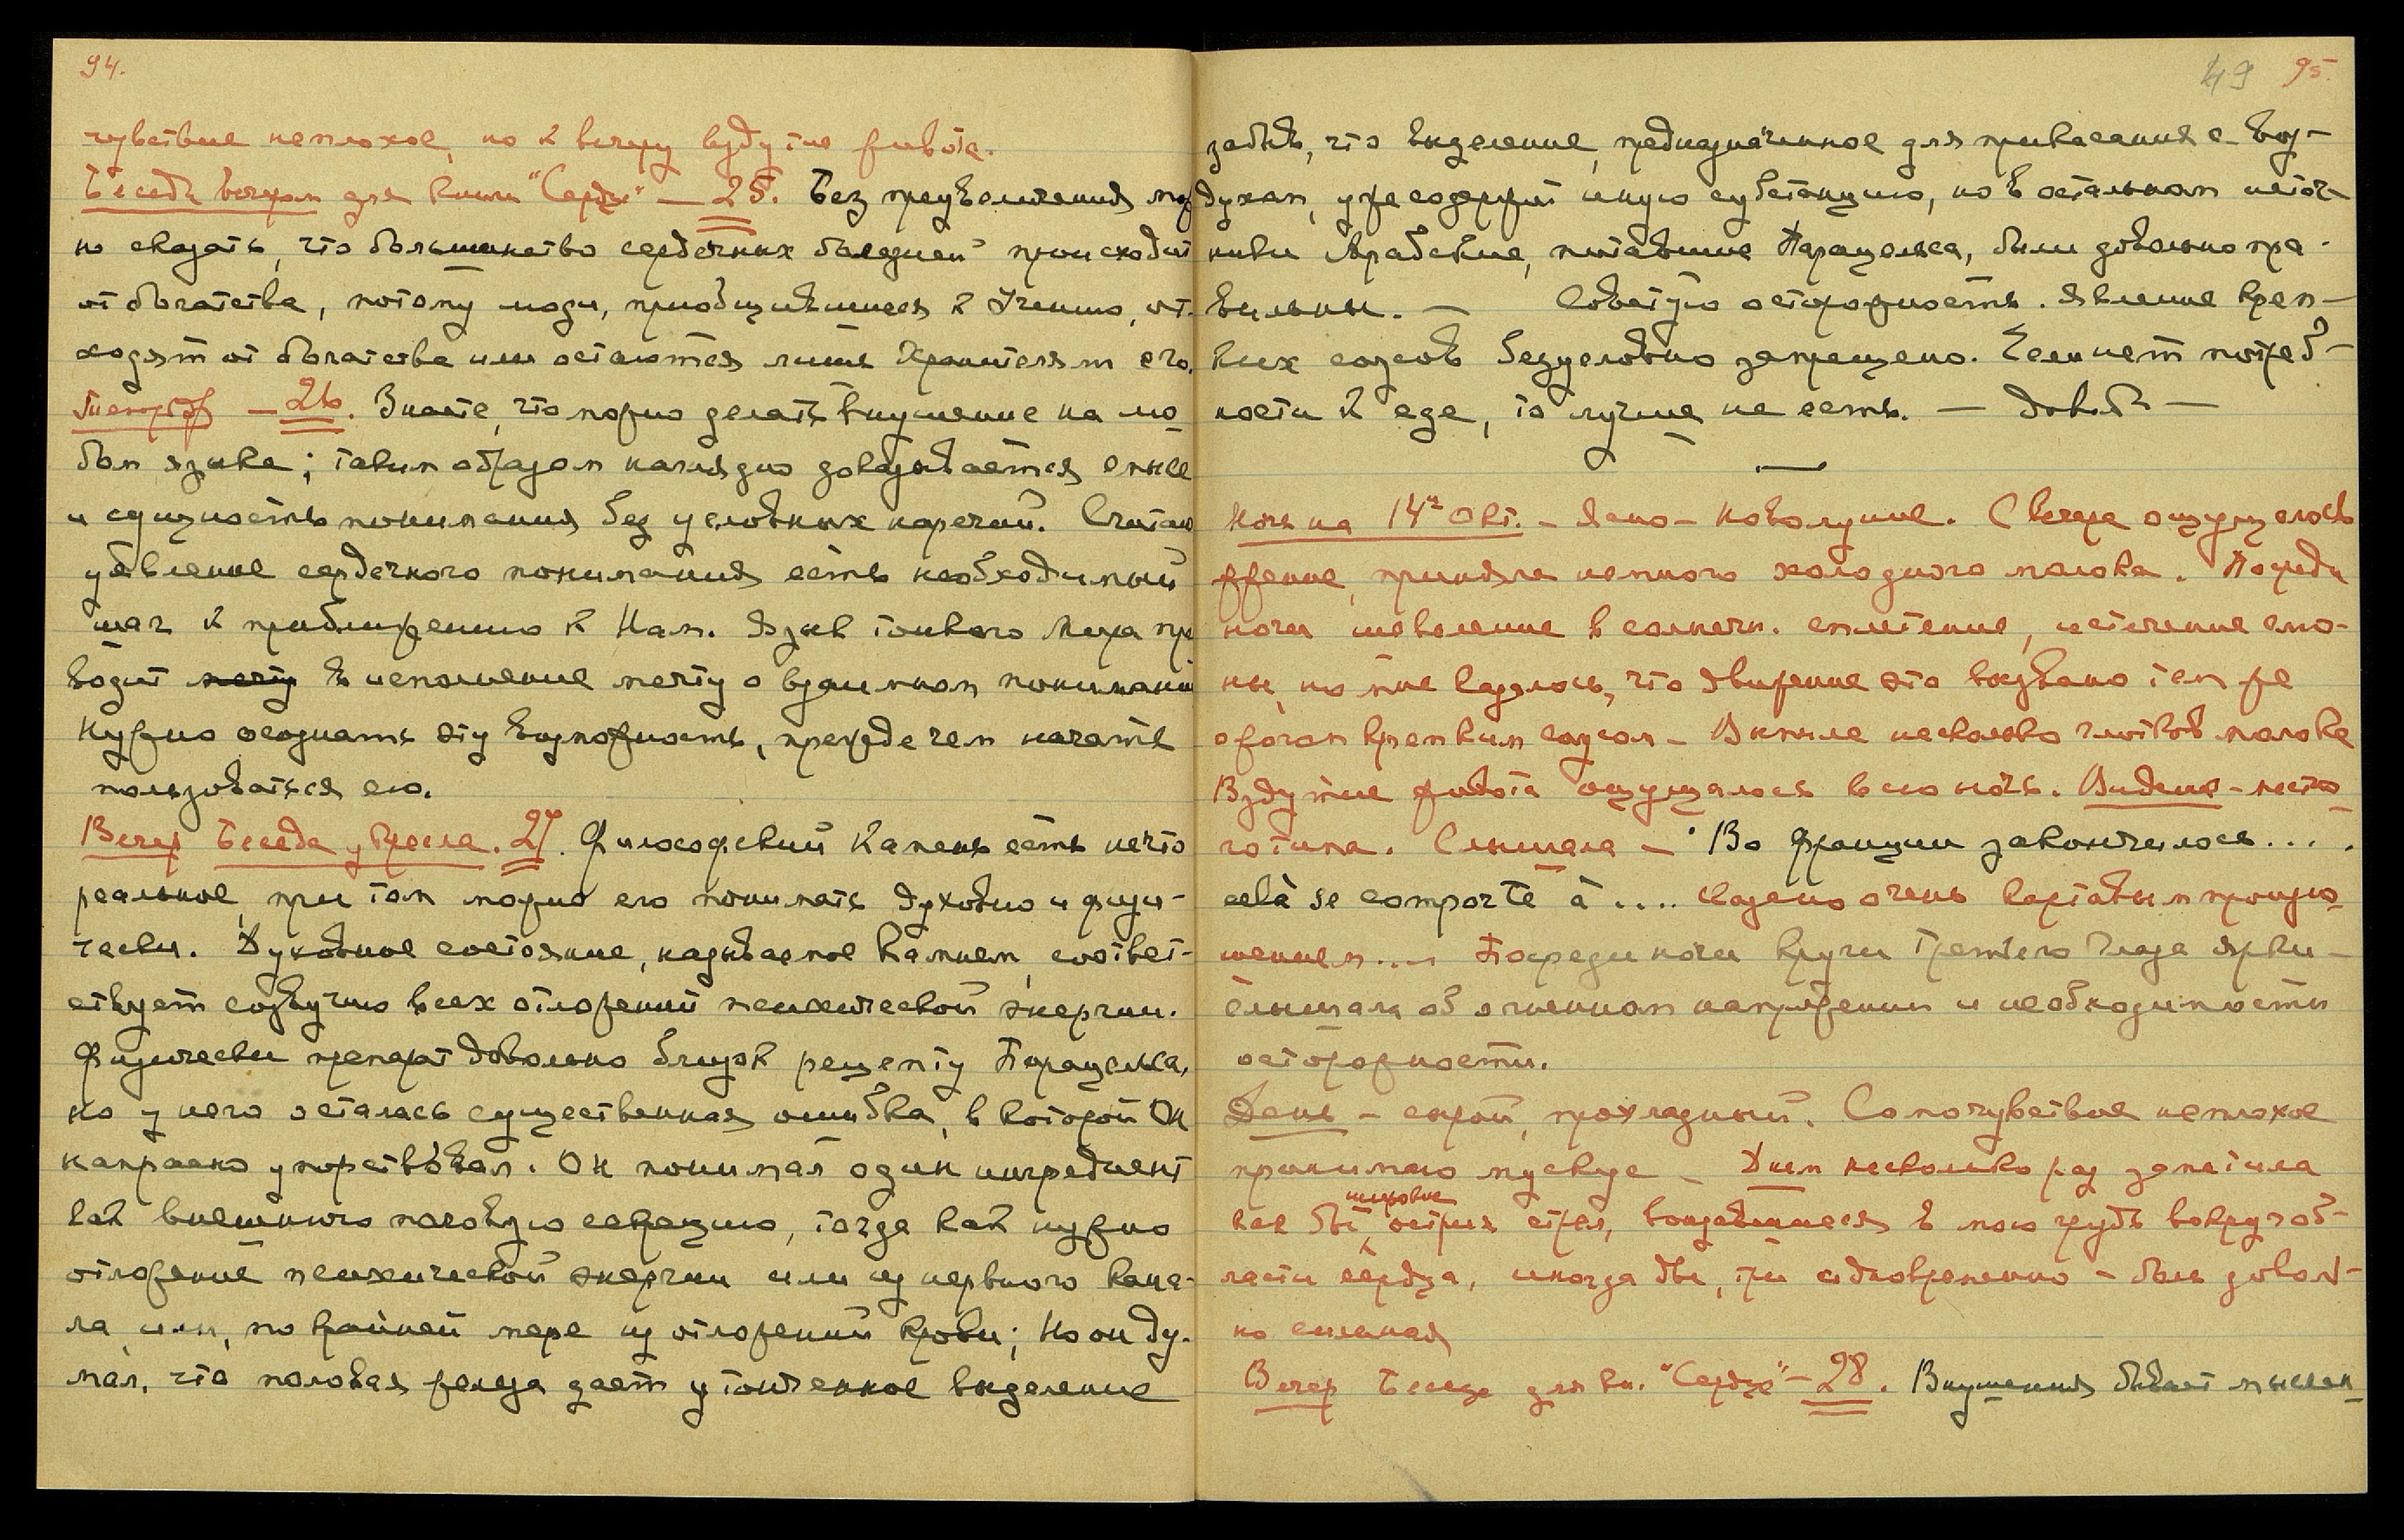 94.
чувствие неплохое, но к вечеру вздутие живота.
Беседа вечером для книги "Сердце" — 25. Без преувеличения мож
но сказать, что большинство сердечных болезней происходит
от богатства, потому люди, приобщившиеся к Учению, от-
ходят от богатства или остаются лишь Хранителями его.
— 26. Знаете, что можно делать внушение на лю
бом языке; таким образом наглядно доказывается смысл
и сущность понимания без условных наречий. Считаю
уявление сердечного понимания есть необходимый
шаг к приближению к Нам. Язык Тонкого Мира при
водит мечту в исполнение мечту о взаимном понимании
Нужно осознать эту возможность, прежде чем начать
пользоваться ею.
Вечер Беседа у Кресла. 27. Философский Камень есть нечто
реальное, при том можно его понимать духовно и физи-
чески. Духовное состояние, называемое Камнем, соответ-
ствует созвучию всех отложений психической энергии.
Физически препарат довольно близок рецепту Парацельса,
но у него осталась существенная ошибка, в которой Он
напрасно упорствовал. Он понимал один ингредиент
как внешнюю половую секрецию, тогда как нужно
отложение психической энергии или из нервного кана-
ла, или, по крайней мере из отложений крови; Но он ду-
мал, что половая железа дает утонченное выделение
49 95.
забыв, что выделение, предназначенное для прикасания с воз-
духом, уже содержит иную субстанцию, но в остальном источ-
ники Арабские, питавшие Парацельса, были довольно пра-
вильны. — Советую осторожность. Явление креп-
ких соусов безусловно запрещено. Если нет потреб-
ности к еде, то лучше не есть. — Довольно —
Ночь на 14ое Окт. — Ясно — Новолуние. С вечера ощущалось
жжение, приняла немного холодного молока. Посреди
ночи шевеление в солнечн. сплетение, истечение слю-
ны, но мне казалось, что движение это вызвано тем же
ожогом крепким соусом — Выпила несколько глотков молока
Вздутие живота ощущалось всю ночь. Видение —
Слышала — Во Франции закончилось....
celà se comporte à .... сказано очень картавым произно
шением.... Посреди ночи Кручи Третьего Глаза ярки —
слышала об огненном напряжении и необходимости
осторожности.
День — серый, прохладный. Самочувствие неплохое
принимаю мускус — Днем несколько раз заметила
как бы шиповые острия стрел, вонзавшиеся в мою грудь вокруг об-
ласти сердца, иногда две, три одновременно — боль доволь-
но сильная
Вечер Беседа для кн. "Сердце" — 28. Внушения бывает мыслен